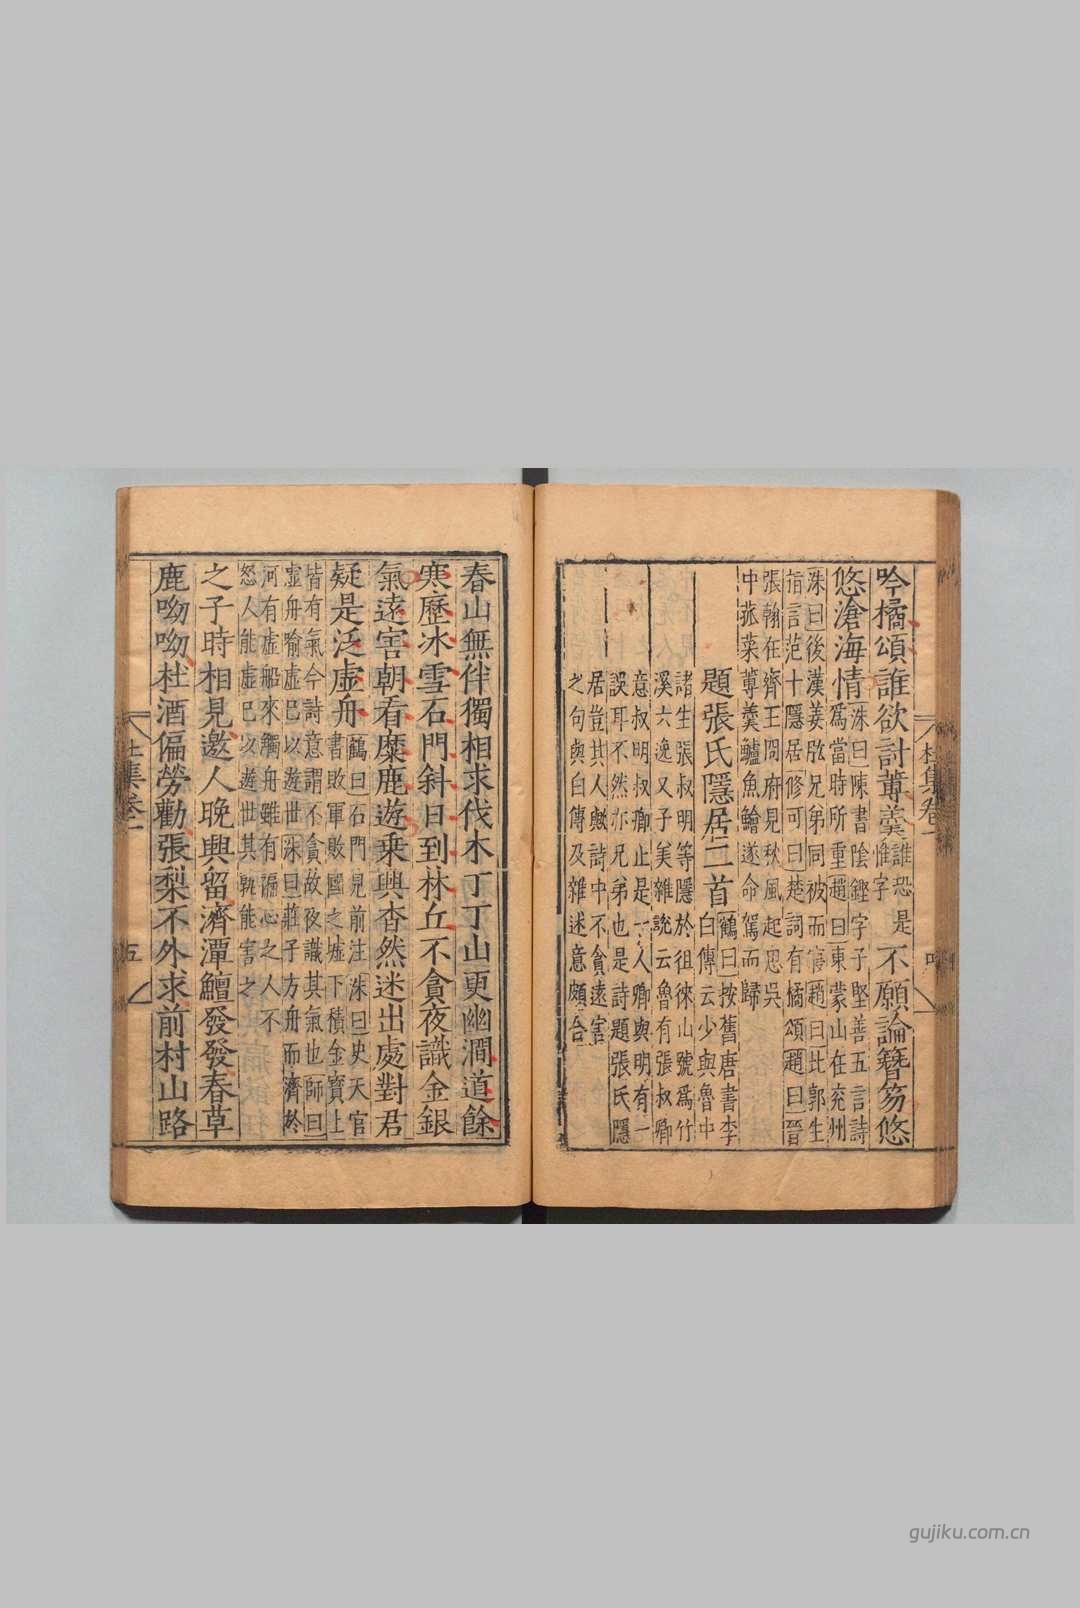 吟橘頌誰欲討蓴羹誰恐是惟字不願論簪笏悠
悠滄海情洙曰陳書陰鏗字子堅善五言詩
爲當時所重趙曰東蒙山在兖州
洙曰後漢姜肱兄弟同被而寢趙曰比郭生
指言范十隱居修可曰楚詞有橘頌趙曰晉
張翰在齊王冏府見秋風起思吳
中菰菜蓴羹鱸魚鱠遂命駕而歸
題張氏隱居二首鶴曰按舊唐書李
白傳云少與魯中
諸生張叔明等隱於徂徠山號爲竹
溪六逸又子美雜說云魯有張叔卿
意叔明叔卿止是一人卿與明有一
誤耳不然亦兄弟也是詩題張氏隱
居豈其人歟詩中不貪遠害
之句與白傳及雜述意頗合
杜集卷一
春山無伴獨相求伐木丁丁山更幽澗道餘
寒歷冰雪石門斜日到林丘不貪夜識金銀
氣遠害朝看麋鹿遊乗興杳然迷出處對君
疑是泛虛舟鶴曰石門見前注洙曰史天官
書敗軍敗國之墟下積金寶上
皆有氣今詩意謂不貪故夜識其氣也師曰
虛舟喻虛已以遊世洙曰莊子方舟而濟於
河有虛船來觸舟雖有惼心之人不
怒人能虛已以遊世其孰能害之
之子時相見邀人晚興留濟潭鱣發發春草
鹿呦呦杜酒偏勞勸張梨不外求前村山路
杜集卷一
五
gujiku.com.cn